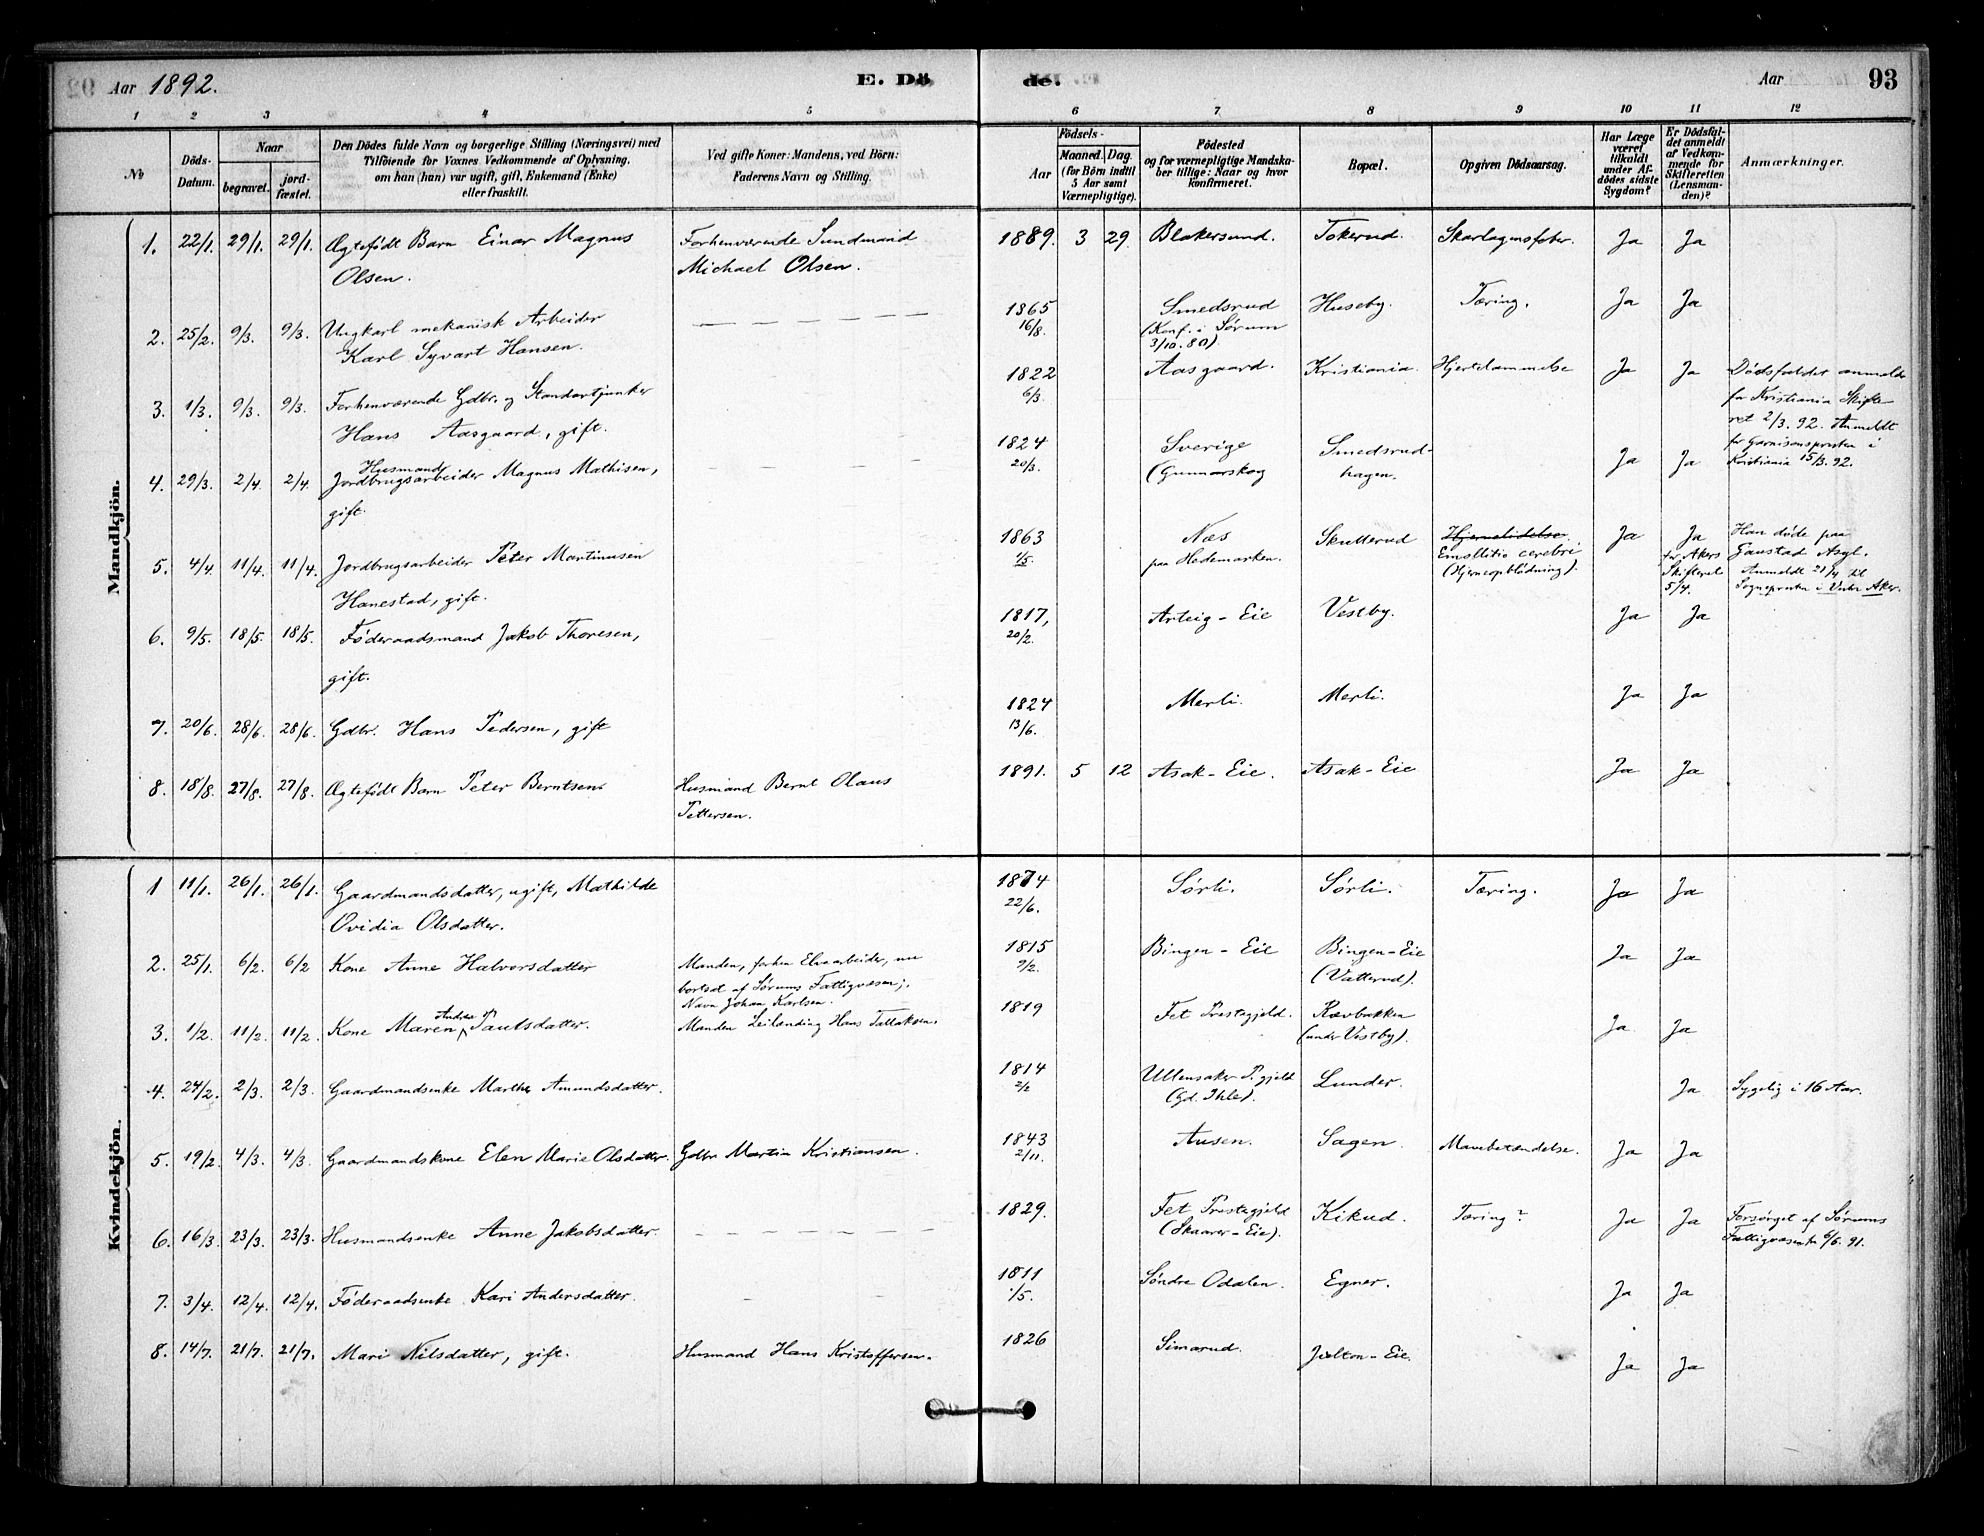 Aar 1892. E. Dö de. Aar 93
1 2 3 4 5 6 7 8 9 10 11 12
No
Döds-Datum.
Naar
begravet. jord-fæstet.
Den Dödes fulde Navn og borgerlige Stilling (Næringsvei) med
Tilföiende for Voxnes Vedkommende af Oplysning,
om han (hun) var ugift, gift, Enkemand (Enke)
eller fraskilt.
Ved gifte Koner: Mandens, ved Börn:
Faderens Navn og Stilling.
Födsels-
Aar Maaned. Dag.
(for Börn indtil
5 Aar samt
Værnepligtige).
Födested
og for værnepligtige Mandska-
ber tillige: Naar og hvor
konfirmeret.
Bopæl.
Opgiven Dödsaarsag.
Har Læge
været
tilkaldt
under Af-
dödes sidste
Sygdom?
Er Dödsfal-
det anmeldt
af Vedkom-
mende for
Skifteretten
(Lensman-
den)?
Anmærkninger.
Mandkjön.
1. 22/1. 29/1. 29/1. Ægtefödt Barn Einar Magnus Forhenværende Sundmand 1889. 3 29 Blakersund. Tokerud. Skarlagensfeber. Ja Ja
Olsen. Michael Olsen.
2. 25/2. 9/3. 9/3. Ungkarl mekanisk Arbeider 1865 Smedsrud Huseby. Tæring. Ja Ja
Karl Syvart Hansen. 16/8. (Konf. i Sørum
3/10. 80).
3. 1/3. 9/3. 9/3. Forhenværende Gdbr. og Standartjunker 1822 Aasgaard. Kristiania. Hjertelammelse Ja Ja Dödsfaldet anmeldt
Hans Aasgaard, gift. 6/3. for Kristiania Skifte
ret 2/3. 92. Anmeldt
for Garnisonspresten i
Kristiania 15/3. 92.
4. 29/3. 2/4. 2/4. Husmand Jordbrugsarbeider Magnus Mathisen, 1824 Sverige Smedsrud- Ja Ja
gift. 20/3. (Gunnarskog hagen.
5. 4/4. 11/4. 11/4. Jordbrugsarbeider Peter Martinusen 1863 Næs Skutterud Hjernelidelse. Ja Ja Han døde paa
Hanestad, gift. 1/5. paa Hedemarken. Emollitio cerebri for Akers Gaustad Asyl.
(Hjerneopblødning). Skifteret Anmeldt 21/4 til
5/4. Sognepresten i Vestre Aker.
6. 9/5. 18/5. 18/5. Föderaadsmand Jakob Thoresen, 1817, Arteig-Eie Vestby. Ja Ja
gift. 20/2.
7. 20/6. 28/6. 28/6. Gdbr. Hans Pedersen, gift 1824 Merli. Merli. Ja Ja
13/6.
8. 18/8. 27/8. 27/8. Ægtefödt Barn Peter Berntsen. Husmand Bernt Olaus 1891. 5 12 Asak-Eie. Asak-Eie Ja Ja
Pettersen.
Kvindekjön.
1 11/1. 26/1. 26/1. Gaardmandsdatter, ugift, Mathilde 1874 Sørli. Sørli. Tæring. Ja Ja
Ovidia Olsdatter. 22/6.
2. 25/1. 6/2. 6/2 Kone Anne Halvorsdatter Manden, forhen Elvearbeider, nu 1815 Bingen-Eie Bingen-Eie Ja Ja
bortsat af Sørums Fattigvæsen; 9/2. (Vatterud).
Navn Johan Karlsen.
3. 1/2. 11/2. 11/2. Kone Maren Andrea Paulsdatter. Manden Leilending Hans Tallaksen. 1819 Fet Prestegjeld. Rævbakken Ja Ja
(under Vestby).
4. 24/2. 2/3. 2/3. Gaardmandsenke Marthe Amundsdatter. 1814 Ullensaker P.gjeld Lunder. Ja Sygelig i 16 Aar.
2/2 (Gd. Ihle).
5. 19/2. 4/3. 4/3. Gaardmandskone Elen Marie Olsdatter. Gdbr Martin Kristiansen. 1843 Ausen. Sagen. Mavebetændelse. Ja Ja
2/11.
6. 16/3. 23/3. 23/3. Husmandsenke Anne Jakobsdatter. 1829. Fet Prestegjeld Kikud. Tæring? Ja Ja Forsørget af Sørums
(Skaarer-Eie). Fattigvæsen fra 6/6. 91.
7. 3/4. 12/4. 12/4. Föderaadsenke Kari Andersdatter. 1811 Søndre Odalen. Egner. Ja Ja
1/5.
8. 14/7. 21/7. 21/7. Mari Nilsdatter, gift. Husmand Hans Kristoffersen. 1826 Simarud. Jølton-Eie. Ja Ja